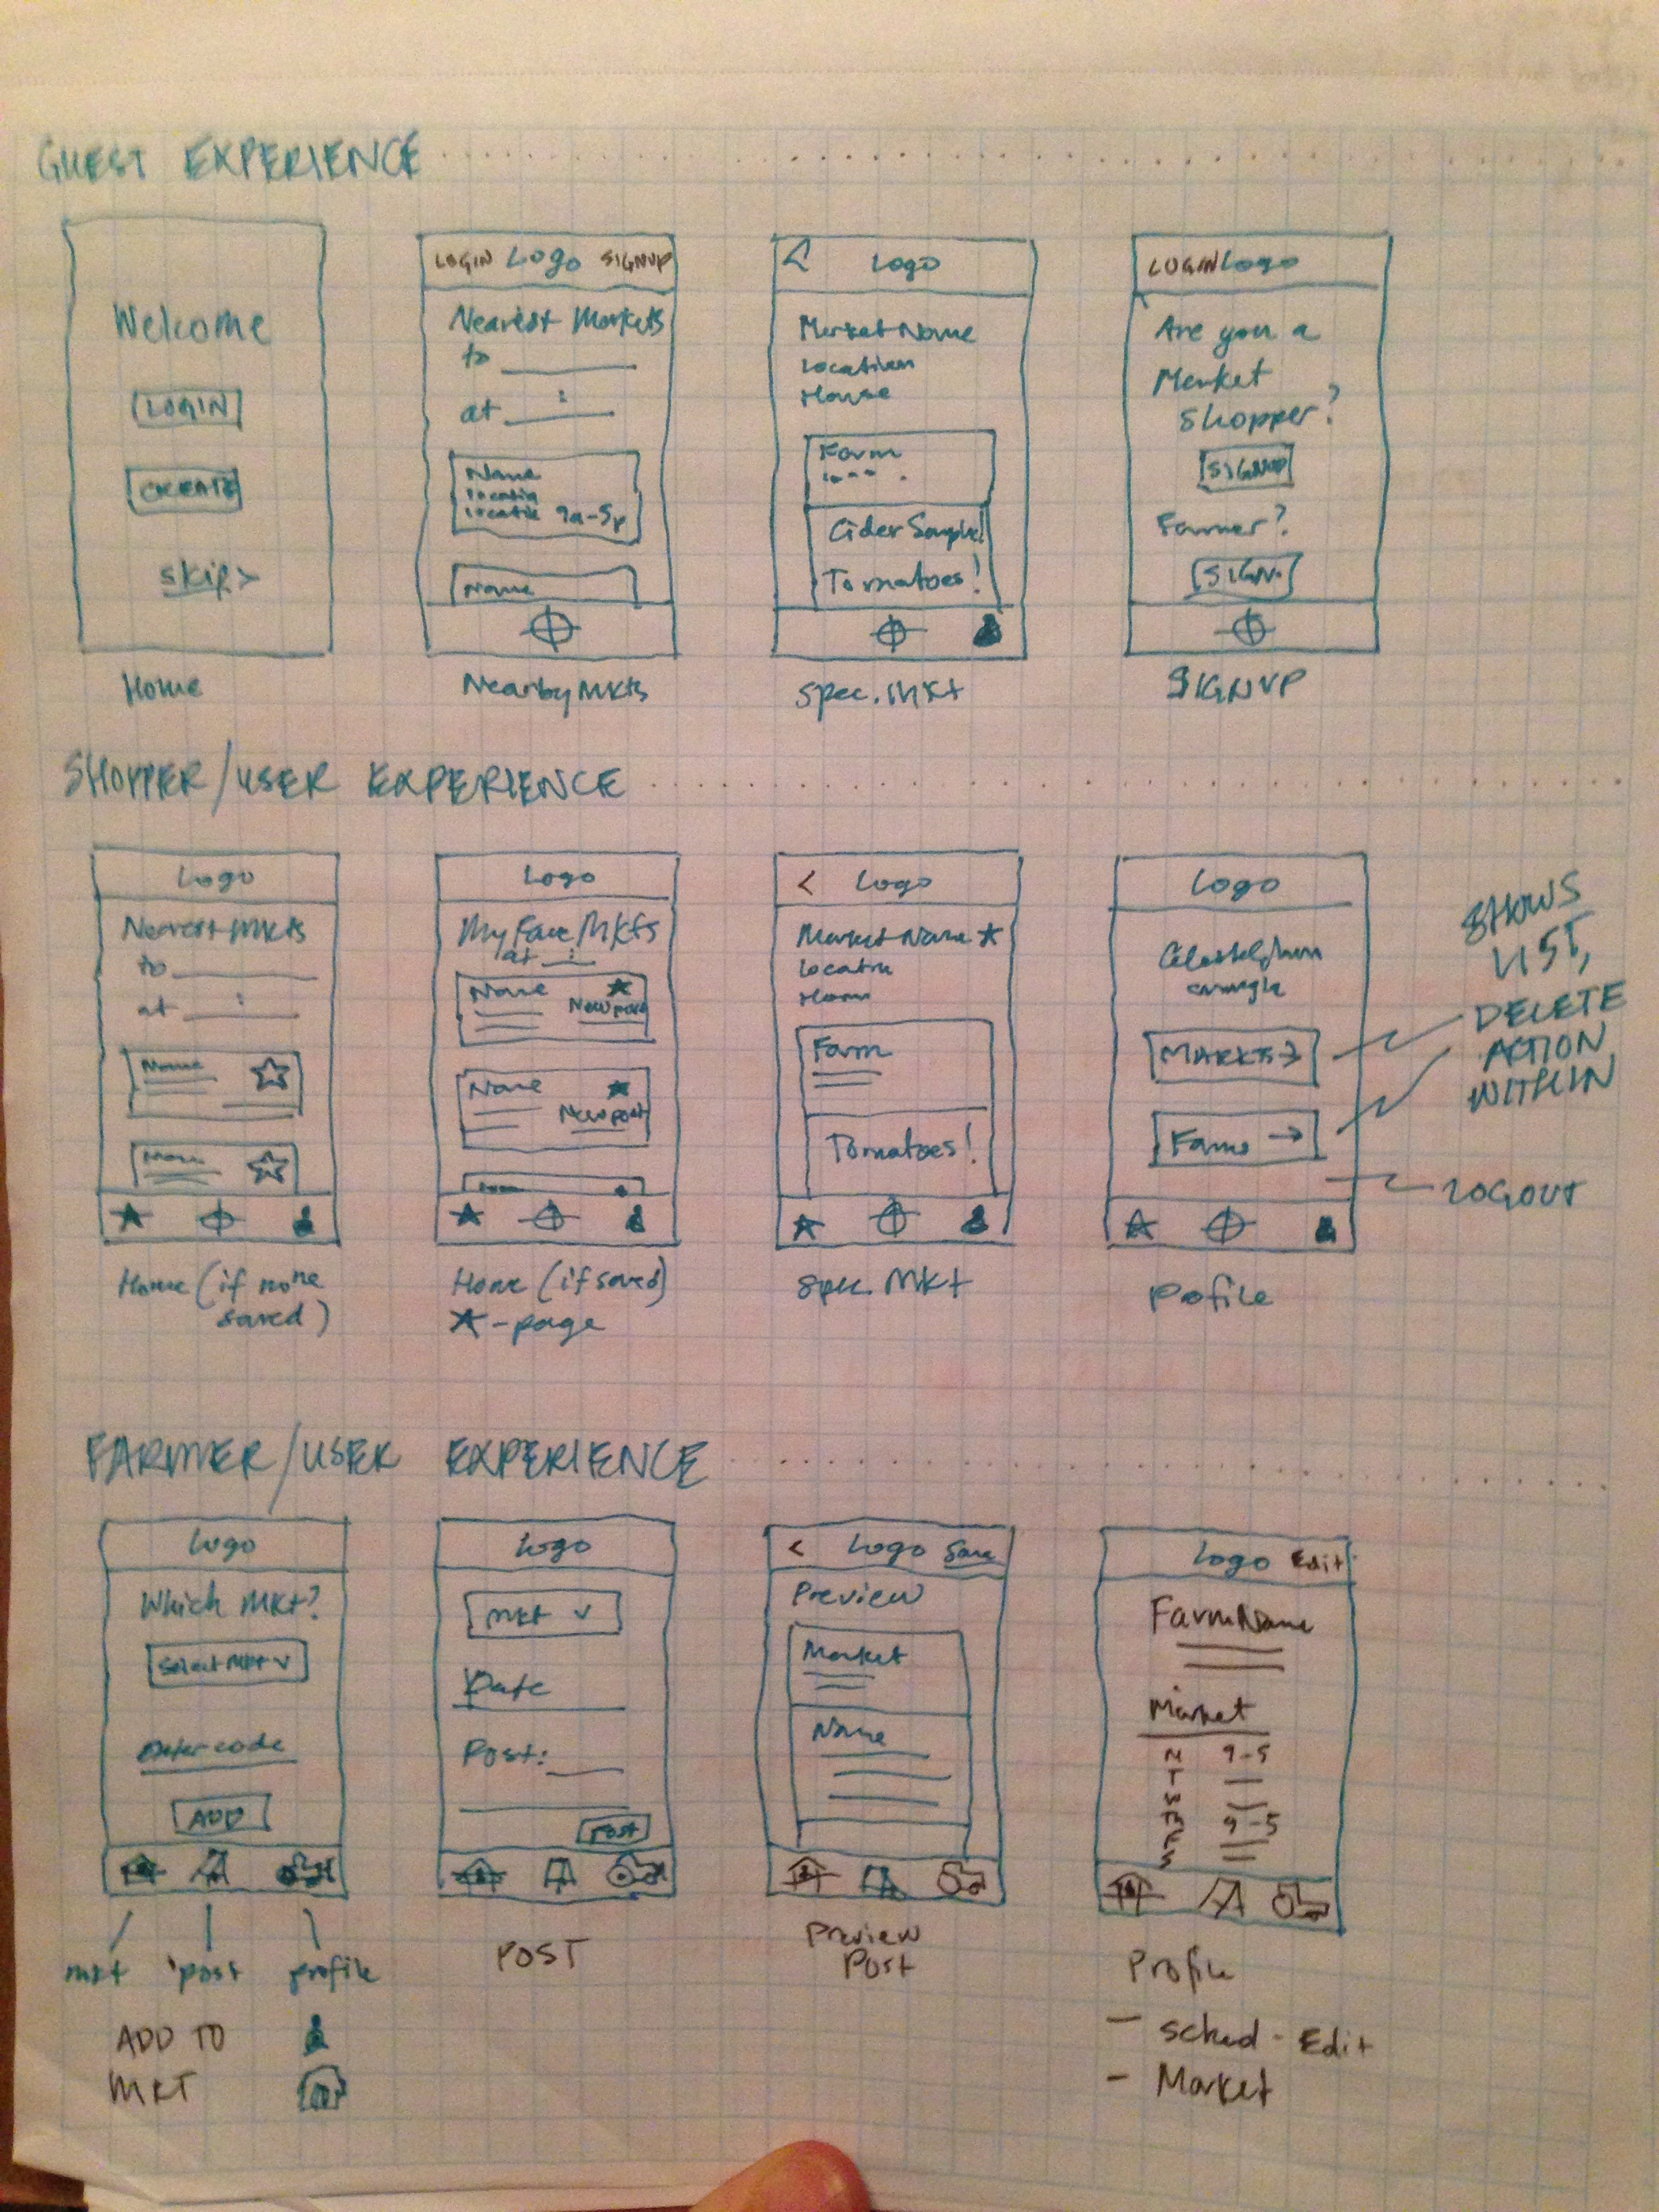 GUEST EXPERIENCE
Welcome
LOGIN
CREATE
skip >
Home
LOGIN Logo SIGNUP
Nearest Markets
to
at :
Name
Locatin
9a-5p
Name
Nearby Mkts
< Logo
Market Name
Location
House
Farm
Cider Sample!
Tomatoes!
Spec. Mkt
LOGIN Logo
Are you a
Market
Shopper?
SIGNUP
Farmer?
SIGN
SIGNUP
SHOPPER/USER EXPERIENCE
Logo
Nearest Mkts
to
at :
Name
Name
Home (if none
saved)
Logo
My Fave Mkts
at :
Name
New post
Name
New post
Home (if saved)
★-page
< Logo
Market Name ★
Locatn
Farm
Tomatoes!
Spec. Mkt
Logo
MARKTS →
Farms →
Pofile
SHOWS
LIST,
DELETE
ACTION
WITHIN
LOGOUT
FARMER/USER EXPERIENCE
Logo
Which Mkt?
Select Mkt v
Enter code
ADD
mkt post profile
ADD TO
MKT
Logo
mkt v
Date
Post:
POST
POST
< Logo Save
Preview
Market
Name
Preview
Post
Logo Edit
Farm Name
Market
M 9-5
T —
W —
Th 9-5
F —
S —
Profile
— sched - Edit
— Market